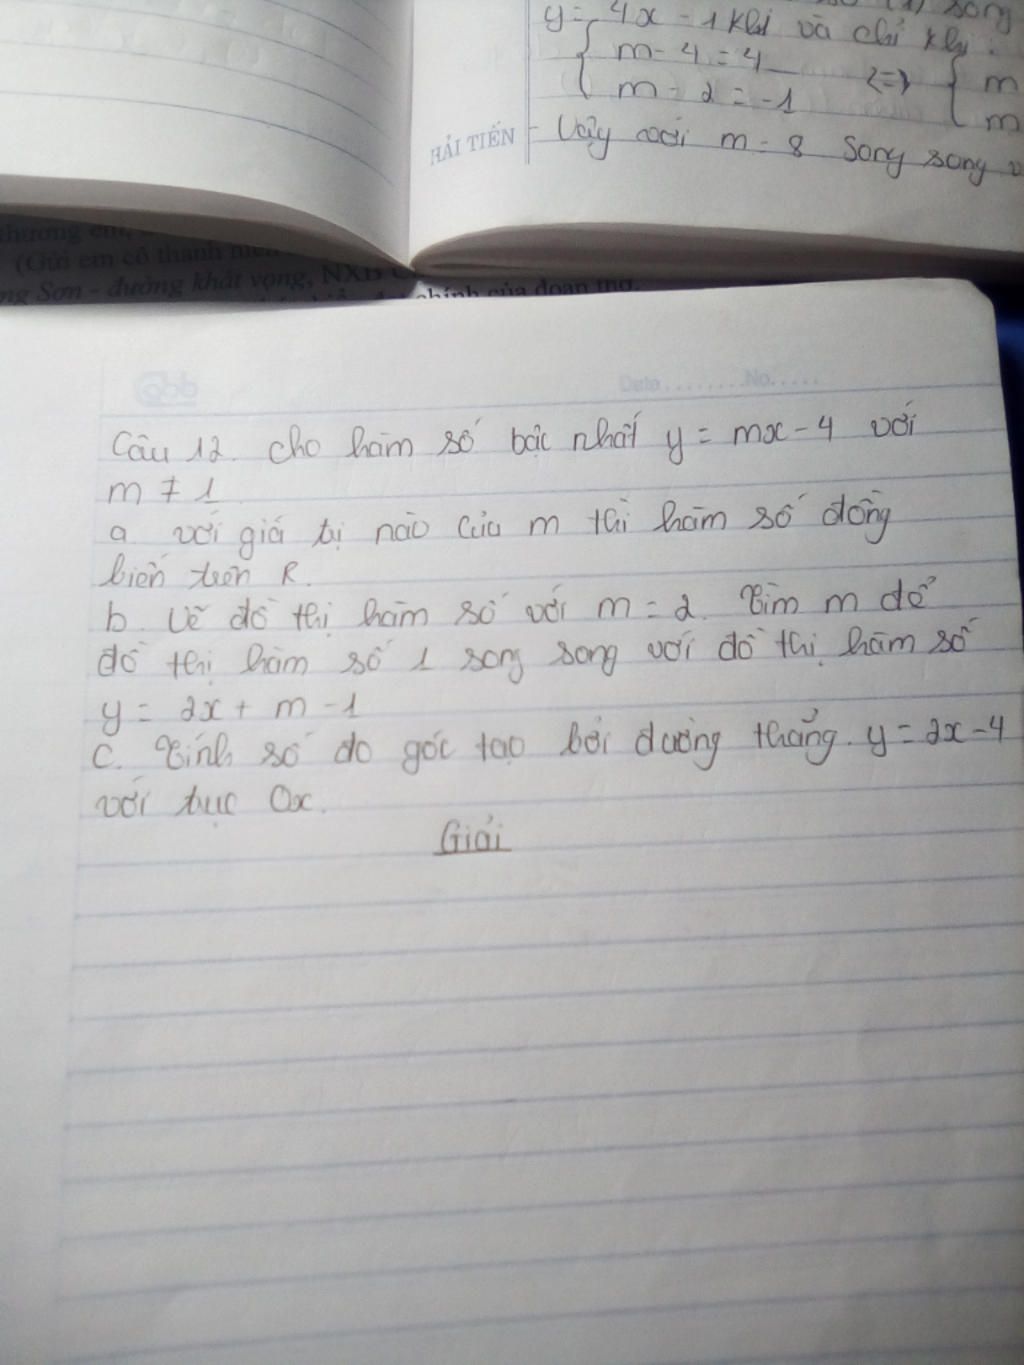 y = 4x - 1 khi và chỉ khi:
m - 4 = 4 <=> m
m - 2 = -1 m
HẢI TIẾN
- Vậy với m = 8 song song
(Gửi em cô thanh niên
Sơn - đường khát vọng, NXB
chính của đoạn thơ.
Date ........ No. ....
Câu 12. Cho hàm số bậc nhất y = mx - 4 với
m ≠ 1
a với giá tị nào của m thì hàm số đồng
biến trên R.
b. Vẽ đồ thị hàm số với m = 2. Tìm m để
đồ thị hàm số 1 song song với đồ thị hàm số
y = 2x + m - 1
C. Tính số đo góc tạo bởi đường thẳng. y = 2x - 4
với trục Ox.
Giải